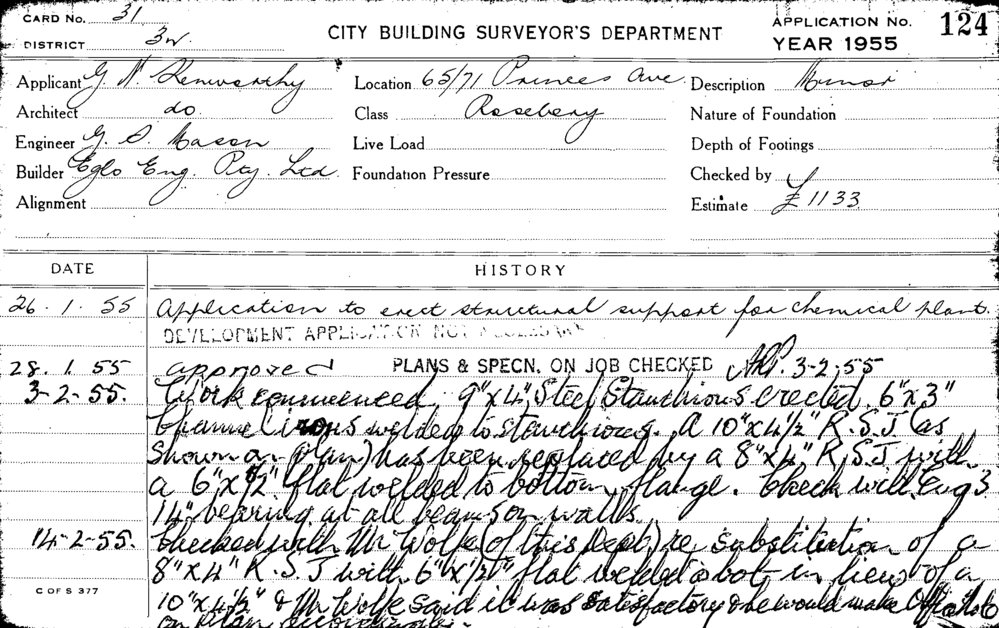 CARD No. 31
DISTRICT 3W.
CITY BUILDING SURVEYOR'S DEPARTMENT
APPLICATION No. 124
YEAR 1955
Applicant G. N. Kenworthy Location 65/71 Princes Ave. Description Minor
Architect do. Class Rosebery Nature of Foundation
Engineer G. S. Mason Live Load Depth of Footings
Builder Eglo Eng. Pty. Ltd. Foundation Pressure Checked by
Alignment Estimate £1133
DATE HISTORY
26. 1. 55 Application to erect structural support for chemical plant.
DEVELOPMENT APPLICATION NOT NECESSARY
28. 1. 55 approved PLANS & SPECN. ON JOB CHECKED 3-2-55
3-2-55. Work commenced, 9"x4" Steel Stanchions erected. 6"x3"
Channel irons welded to stanchions. A 10"x4½" R.S.J (as
shown on plan) has been replaced by a 8"x4" R.S.J with
a 6"x½" flat welded to bottom flange. Check with Eng
14" bearing at all beams on walls.
14-2-55. Checked with Mr Wolfe (of this Dept) re substitution of a
8"x4" R.S.J with 6"x½" flat welded to bot, in lieu of a
10"x4½" & Mr Wolfe said it was satisfactory & he would make
on plan accordingly.
C OF S 377